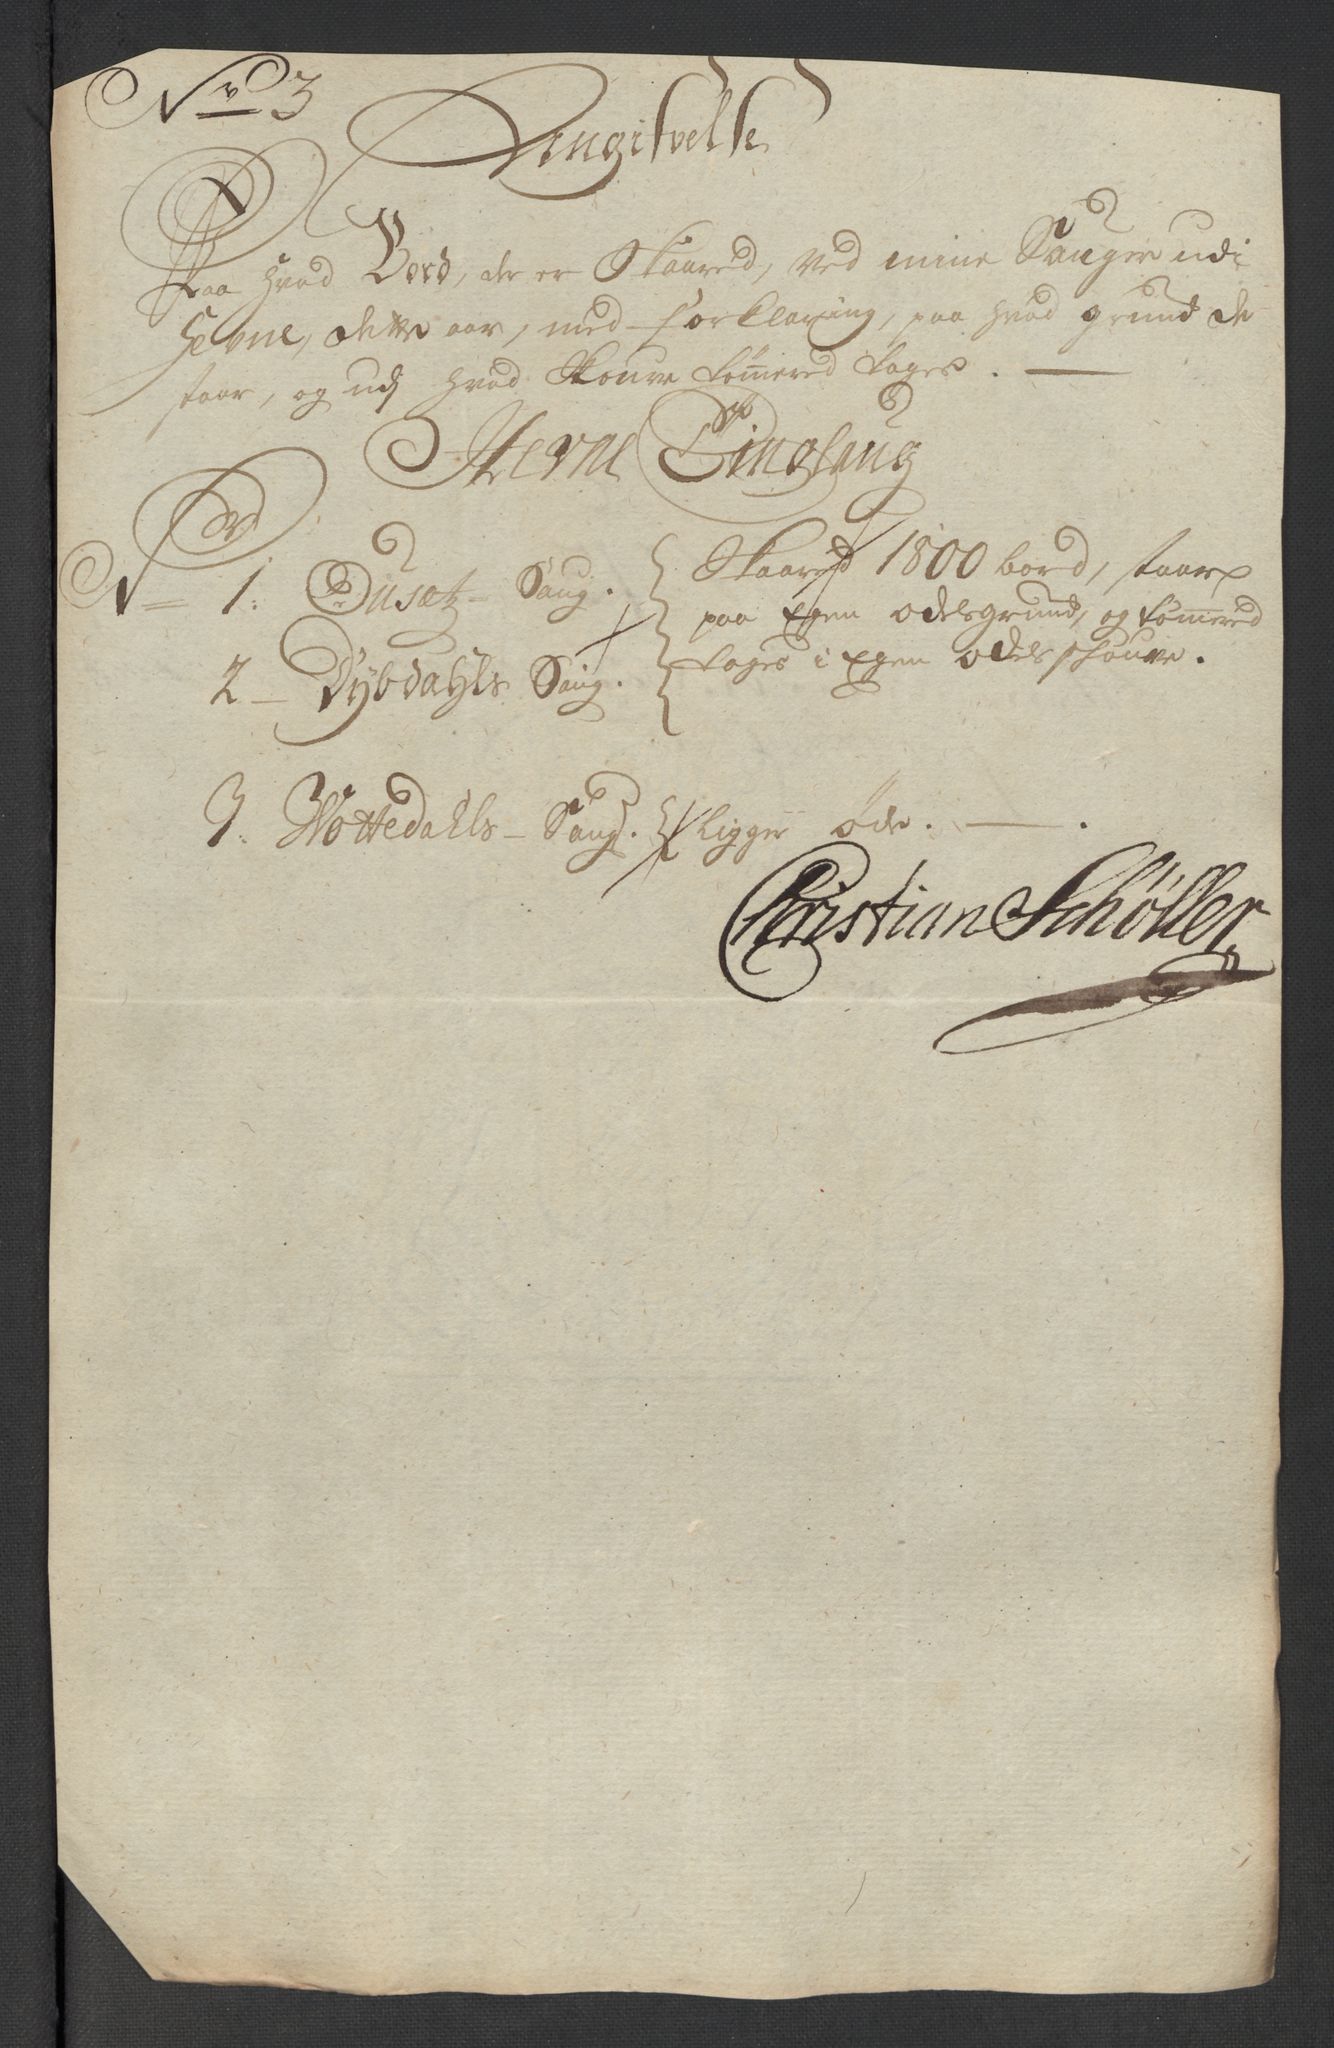 No 3
Angifvelse
Paa hvad Bord, der er Skaared, ved mine Sauger udi
Hevne, dette aar, med forklaring, paa hvad grund de
staar, og udj hvad Skouve tømmered tages. —
Hevne Tinglaug
No 1. Dusæt Saug.
Skaared 1800 bord, staar
paa Egen odelsgrund, og tømmered
2 — Dÿbdahls Saug.
tages i Egen odels schouve.
3. Wottedahls — Saug. ligger øde. — .
Christian Schøller